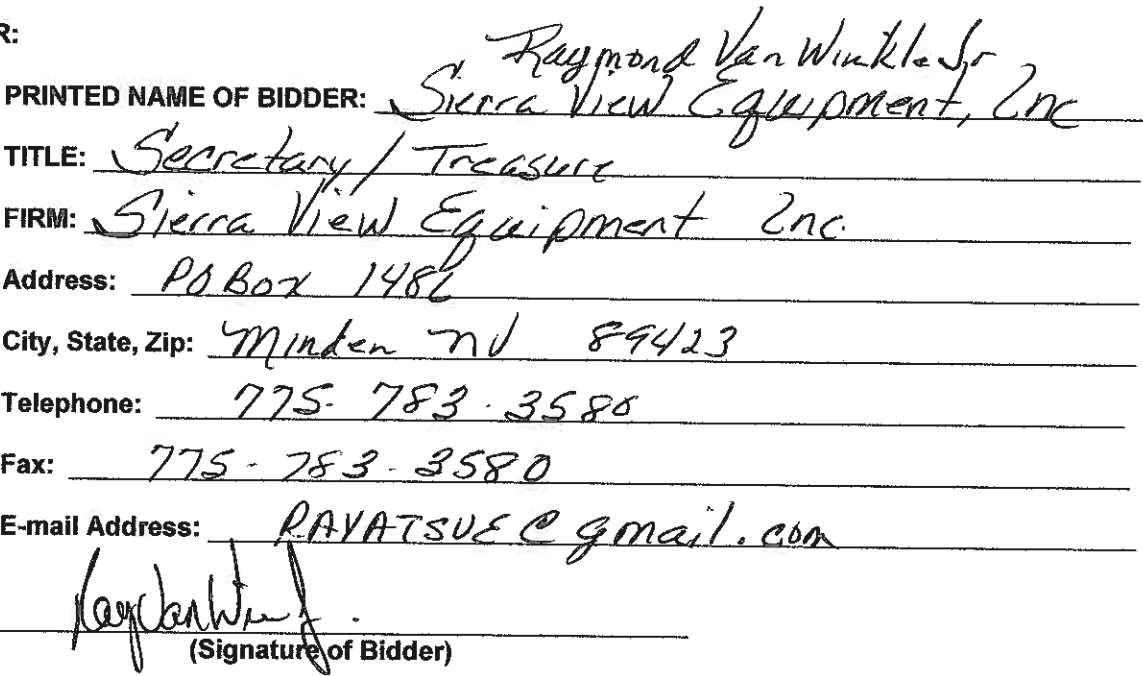 R:
Raymond Van Winkle Jr
PRINTED NAME OF BIDDER: Sierra View Equipment, Inc
TITLE: Secretary / Treasure
FIRM: Sierra View Equipment Inc.
Address: PO Box 1482
City, State, Zip: Minden NV 89423
Telephone: 775-783-3580
Fax: 775-783-3580
E-mail Address: RAYATSVE@gmail.com
Ray Van Win Jr.
(Signature of Bidder)